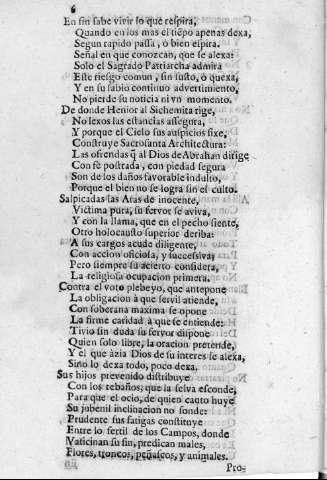 6
En fin sabe vivir lo que respira,
Quando en los mas el tiẽpo apenas dexa,
Segun rapido passa, ò bien espira.
Señal en que conozcan, que se alexa:
Solo el Sagrado Patriarcha admira
Este riesgo comun, sin susto, ò quexa,
Y en su sabio continuo advertimiento,
No pierde su noticia ni vn momento.
De donde Henior al Sichemita rige,
No lexos las estancias assegura,
Y porque el Cielo sus auspicios fixe,
Construye Sacrosanta Architectura:
Las ofrendas q̃ al Dios de Abrahan dirige
Con fè postrada, con piedad segura
Son de los daños favorable indulto,
Porque el bien no se logra sin el culto.
Salpicadas las Aras de inocente,
Victima pura, su fervor se aviva,
Y con la llama, que en el pecho siente,
Otro holocausto superior deriba:
A sus cargos acude diligente,
Con accion oficiosa, y successiva;
Pero siempre su acierto considera,
La religiosa ocupacion primera.
Contra el voto plebeyo, que antepone
La obligacion à que servil atiende,
Con soberana maxima se opone
La firme caridad à que se entiende:
Tivio sin duda su fervor dispone
Quien solo libre, la oracion pretende,
Y el que àzia Dios de su interes se alexa,
Sino lo dexa todo, poco dexa.
Sus hijos prevenido distribuye
Con los rebaños, que la selva esconde,
Para que el ocio, de quien cauto huye
Su jubenil inclinacion no sonde:
Prudente sus fatigas constituye
Entre lo fertil de los Campos, donde
Vaticinan su fin, predican males,
Flores, troncos, peñascos, y animales.
Pro-